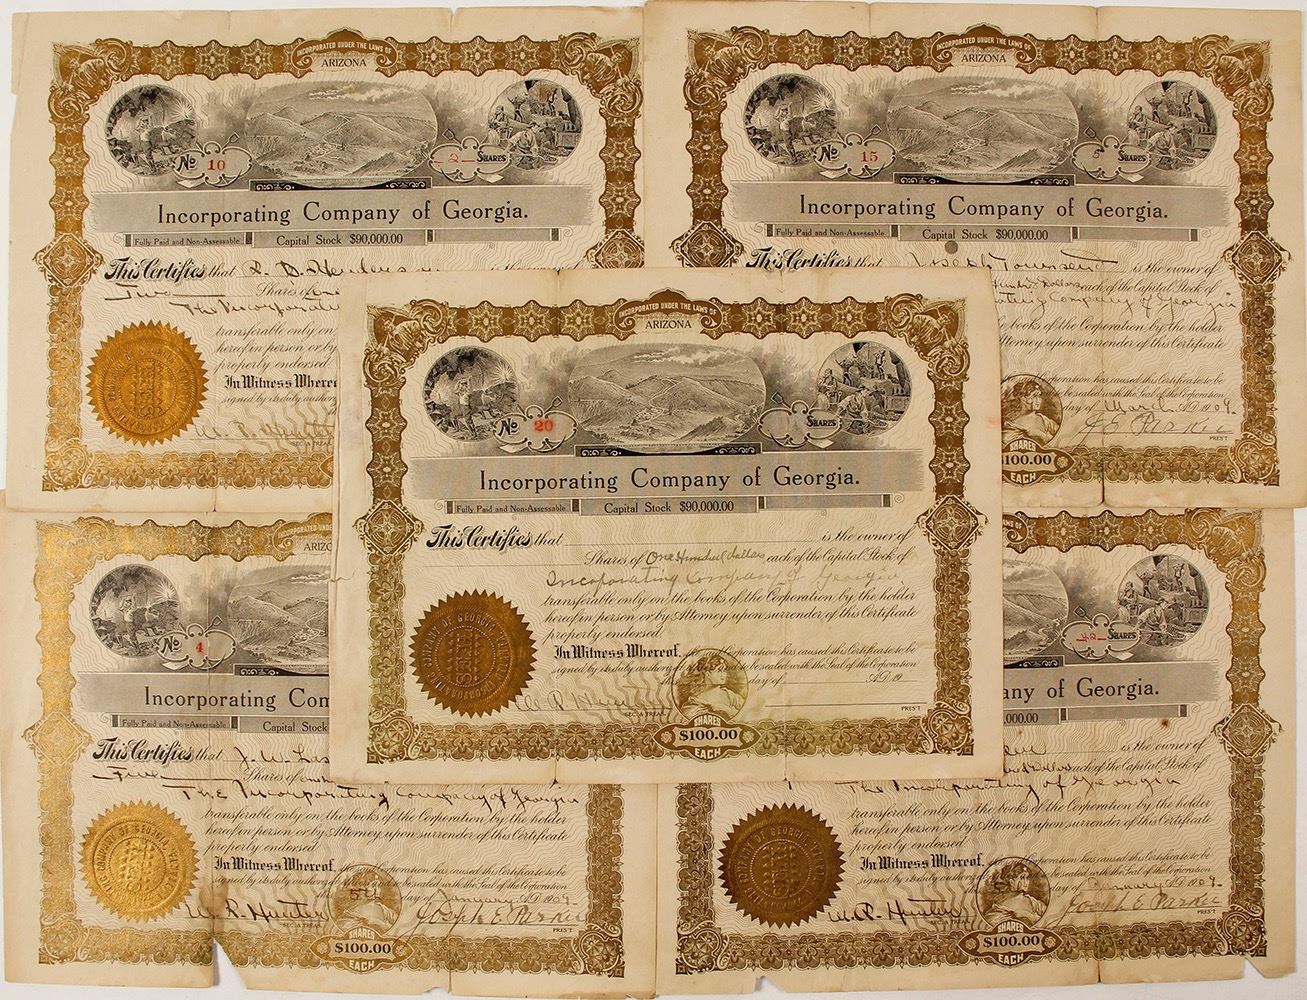 INCORPORATED UNDER THE LAWS OF
ARIZONA
No 10
2 SHARES
Incorporating Company of Georgia.
Fully Paid and Non-Assessable
Capital Stock $90,000.00
This Certifies that
is the owner of
Two Shares of
The Incorporati
transferable only on
hereof in person or by
properly endorsed.
In Witness Where
signed by its duly author
INCORPORATED UNDER THE LAWS OF
ARIZONA
No 15
5 SHARES
Incorporating Company of Georgia.
Fully Paid and Non-Assessable
Capital Stock $90,000.00
This Certifies that Joseph Townsent is the owner of
each of the Capital Stock of
ting Company of Georgia
e books of the Corporation by the holder
ttorney upon surrender of this Certificate
rporation has caused this Certificate to be
be sealed with the Seal of the Corporation
day of March A.D. 1909
J E Parker
PRES'T
SHARES
$100.00
EACH
INCORPORATED UNDER THE LAWS OF
ARIZONA
No 20
SHARES
Incorporating Company of Georgia.
Fully Paid and Non-Assessable
Capital Stock $90,000.00
This Certifies that is the owner of
Shares of One Hundred dollars each of the Capital Stock of
Incorporating Company of Georgia
transferable only on the books of the Corporation by the holder
hereof in person or by Attorney upon surrender of this Certificate
properly endorsed.
In Witness Whereof, the said Corporation has caused this Certificate to be
signed by its duly authorized officers and to be sealed with the Seal of the Corporation
this day of A.D. 19
SEC. & TREAS.
PRES'T
SHARES
$100.00
EACH
INCORPORATED UNDE
ARIZO
No 4
Incorporating Com
Fully Paid and Non-Assessable
Capital Stock
This Certifies that J. W. Las
Five Shares of
The Incorporating Company of Georgia
transferable only on the books of the Corporation by the holder
hereof in person or by Attorney upon surrender of this Certificate
properly endorsed.
In Witness Whereof, the said Corporation has caused this Certificate to be
signed by its duly authorized officers and to be sealed with the Seal of the Corporation
5th day of January A.D. 1909
W. R. Hunter
SEC. & TREAS.
Joseph E. Parker
PRES'T
SHARES
$100.00
EACH
AWS OF
SHARES
any of Georgia.
000.00
is the owner of
each of the Capital Stock of
The Incorporating of Georgia
transferable only on the books of the Corporation by the holder
hereof in person or by Attorney upon surrender of this Certificate
properly endorsed.
In Witness Whereof, the said Corporation has caused this Certificate to be
signed by its duly authorized officers and to be sealed with the Seal of the Corporation
day of January A.D. 1909
W. R. Hunter
SEC. & TREAS.
Joseph E. Parker
PRES'T
SHARES
$100.00
EACH